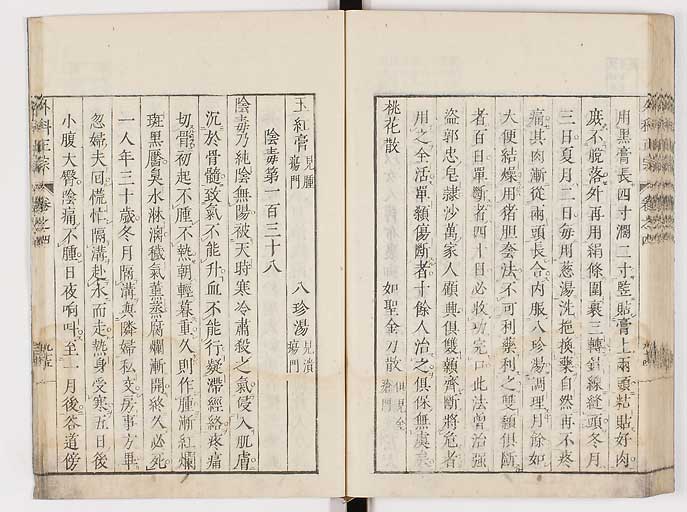 用黑膏長四寸濶二寸竪貼膏上兩頭粘貼好肉
庶不脫落外再用絹條圍裹三轉針線縫頭冬月
三日夏月二日每用葱湯洗挹換藥自然再不疼
痛其肉漸從兩頭長合內服八珍湯調理月餘如
大便結燥用猪胆套法不可利藥利之雙顙俱斷
者百日單斷者四十日必收功完口此法曾治強
盜郭忠皂隷沙萬家人顧興俱雙顙齊斷將危者
用之全活單顙傷斷者十餘人治之俱保無虞
桃花散 如聖金刀散
玉紅膏 見腫瘍門 八珍湯 見潰瘍門
陰毒第一百三十八
陰毒乃純陰無陽被天時寒冷肅殺之氣侵入肌膚
沉於骨髓致氣不能升血不能行凝滯經絡疼痛
切骨初起不腫不熱朝輕暮重久則作腫漸紅爛
斑黑黶臭水淋漓穢氣薰蒸腐爛漸開終久必死
一人年三十歲冬月隔溝與隣婦私交房事方畢
忽婦夫回慌忙隔溝赴水而走熱身受寒五日後
小腹大臀陰痛不腫日夜响叫至一月後臀道傍
外科正宗 卷之四